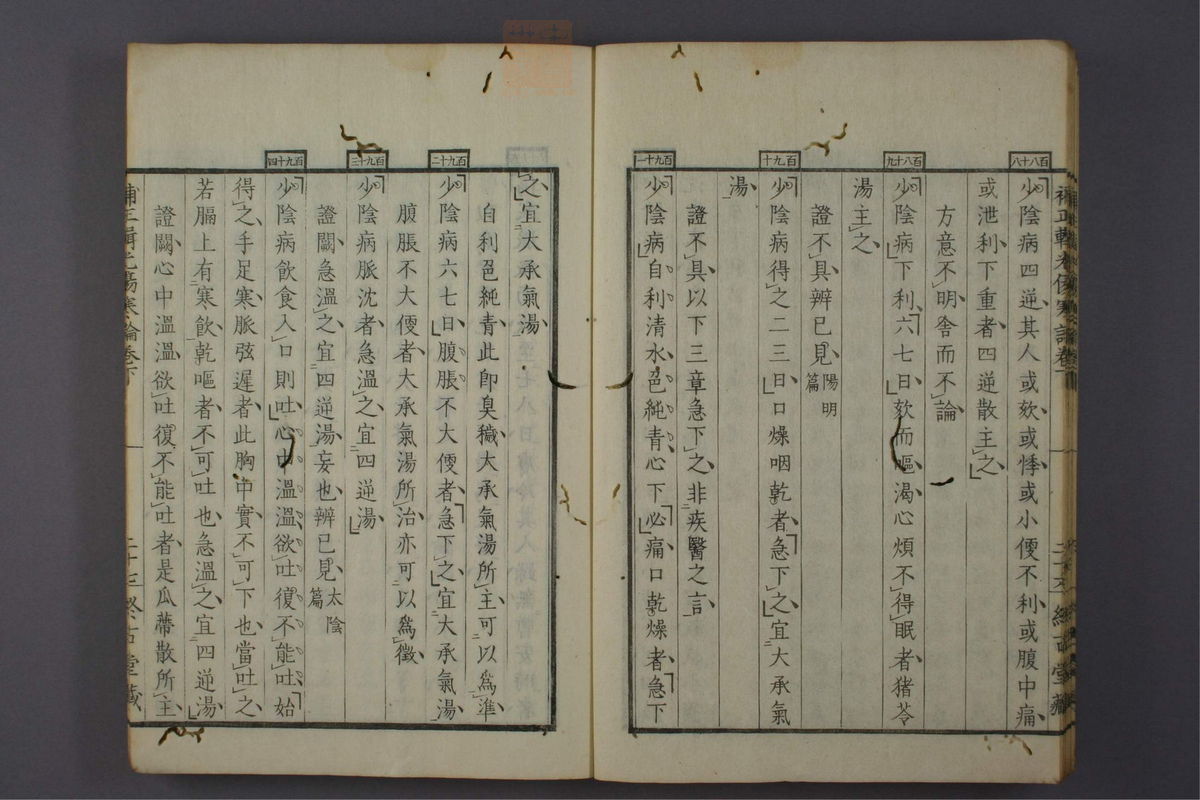 百八十八
少陰病四逆其人或欬或悸或小便不利或腹中痛
或泄利下重者四逆散主之
方意不明舎而不論
百八十九
少陰病下利六七日欬而嘔渴心煩不得眠者猪苓
湯主之
證不具辨已見陽明篇
百九十
少陰病得之二三日口燥咽乾者急下之宜大承氣
湯
證不具以下三章急下之非疾醫之言
百九十一
少陰病自利清水色純青心下必痛口乾燥者急下
之宜大承氣湯
自利色純青此即臭穢大承氣湯所主可以為準
百九十二
少陰病六七日腹脹不大便者急下之宜大承氣湯
腹脹不大便者大承氣湯所治亦可以為徵
百九十三
少陰病脈沈者急溫之宜四逆湯
證闕急溫之宜四逆湯妄也辨已見太陰篇
百九十四
少陰病飲食入口則吐心中溫溫欲吐復不能吐始
得之手足寒脈弦遲者此胸中實不可下也當吐之
若膈上有寒飲乾嘔者不可吐也急溫之宜四逆湯
證闕心中溫溫欲吐復不能吐者是瓜蔕散所主